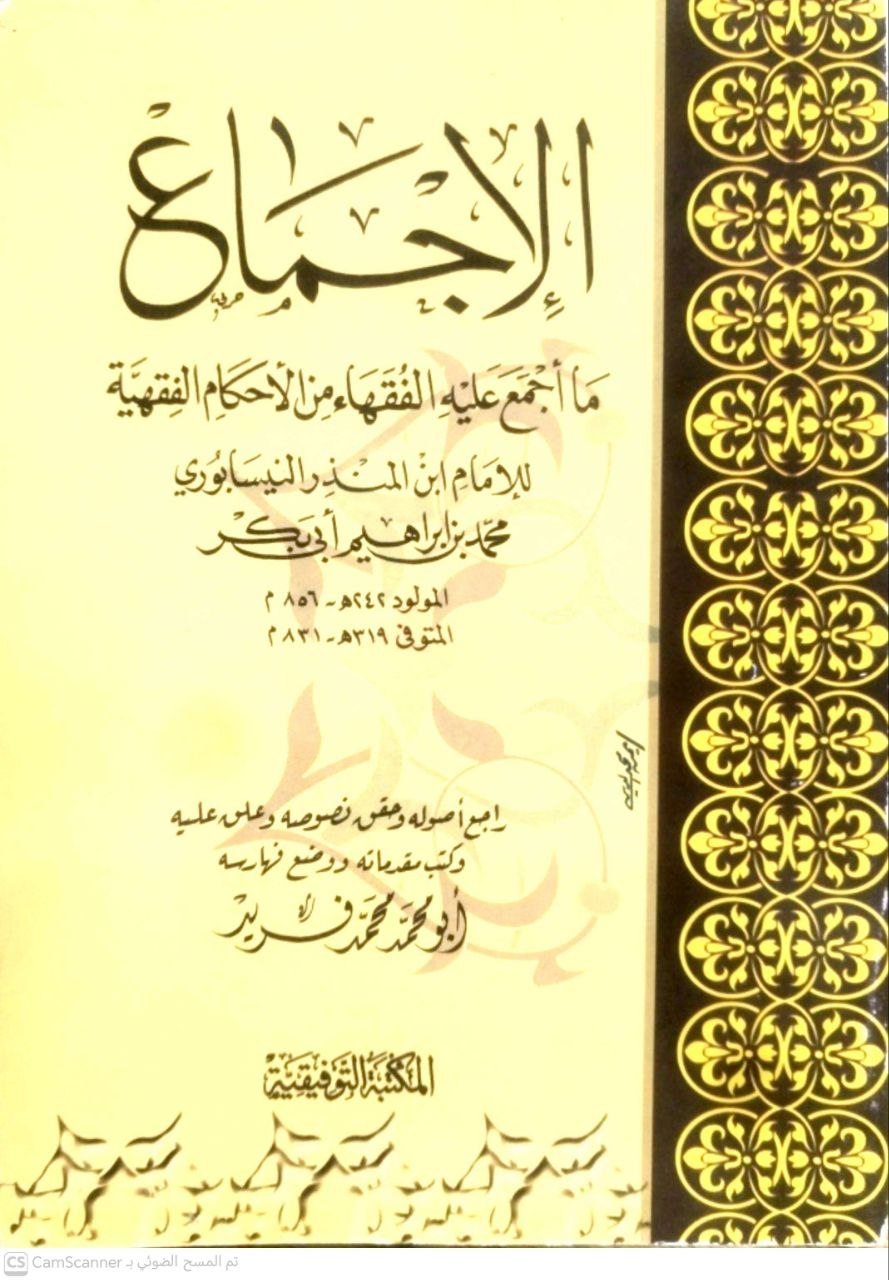 الإجماع
مَا أجْمَعَ عَلَيْهِ الفُقَهَاء مِنَ الأحكامِ الفِقهيَّة
للإمَامِ ابنْ المنْذِر النيسَابُوري
محمّد بن ابراهيم أبي بَكْر
المولود ٢٤٢هـ - ٨٥٦ م
المتوفى ٣١٩هـ - ٨٣١ م
راجع أصوله وحقق نصوصه وعلق عليه
وكتب مقدماته ووضع فهارسه
أبو محمَّد محمَّد فريد
المكتبة التوفيقية
CS CamScanner تم المسح الضوئي بـ